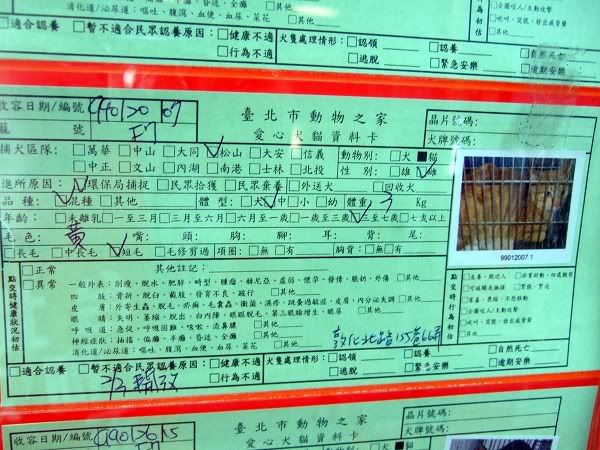 消化道/泌尿道：嘔吐、腹瀉、血便、血尿、菜花 □其他
□適合認養 □暫不適合民眾認養原因： □健康不適 □行為不適 犬隻處理情形： □認領 □認養 □自然死亡 □逃脫 □緊急安樂 □逾期安樂
收容日期/編號 990120 07
臺北市動物之家
晶片號碼：
籠 號 E7
愛心犬貓資料卡
犬牌號碼：
捕犬區隊： □萬華 □中山 □大同 □松山 □大安 □信義 動物別： □犬 ■貓
□中正 □文山 □內湖 □南港 □士林 □北投 性別： □雄 □雌
進所原因： □環保局捕捉 □民眾拾獲 □民眾棄養 □外送犬 □回收犬
品種： □混種 □其他 體型： □大 □中 □小 □幼 體重： 3 Kg
年齡： □未離乳 □一至三月 □三月至六月 □六月至一歲 □一歲至三歲 □三至七歲 □七歲以上
毛色： 黃 嘴： 頭： 胸： 腳： 耳： 背： 尾：
□長毛 □中長毛 □短毛 □毛修剪過 項圈： □無 □有： 胸背： □無 □有：
99012007.1
點交時健康狀況初估
□正常 其他註記：
□異常 一般外表：削瘦、脫水、肥胖、畸型、腫瘤、赫尼亞、虛弱、懷孕、發情、脹奶、外傷 □其他
四肢：骨折、脫臼、截肢、發育不良、跛行 □其他
皮膚：外寄生蟲、脫毛、疥癬、毛囊蟲、黴菌、濕疹、跳蚤過敏症、皮屑、內分泌失調 □其他
眼睛：失明、萎縮、脫出、白內障、眼瞼脫毛、第三眼瞼增生、眼屎 □其他
呼吸道：急促、呼吸困難、咳嗽、流鼻膿 □其他
神經症狀：抽搐、偏癱、半癱、昏迷、全癱 □其他
消化道/泌尿道：嘔吐、腹瀉、血便、血尿、菜花 □其他
敦化北路155巷66弄
點交時行為初估
□友善、親近人 □非常好動、四處觀察
□企圖咬人/主動攻擊
□吠叫、哭號、發出威脅聲
□其他
□適合認養 □暫不適合民眾認養原因： □健康不適 □行為不適 犬隻處理情形： □認領 □認養 □自然死亡 □逃脫 □緊急安樂 □逾期安樂
2/3 開放
收容日期/編號 990120 15
臺北市動物之家
晶片號碼：
籠 號 E7
愛心犬貓資料卡
犬牌號碼：
動物別： □犬 ■貓